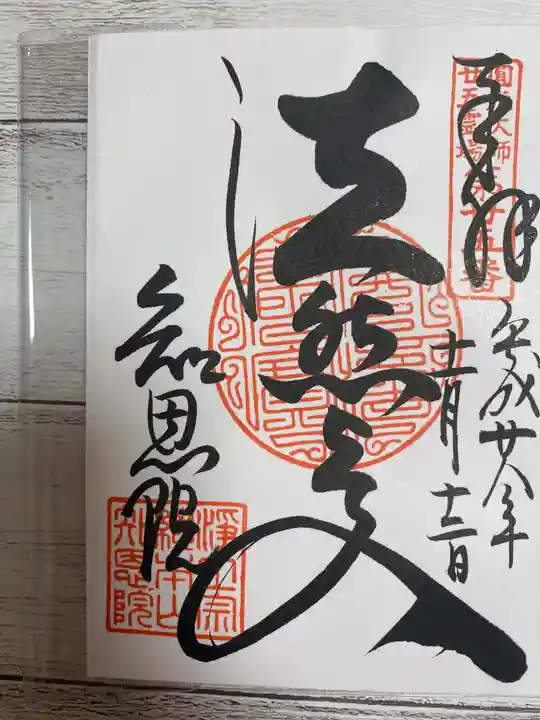 奉拝
圓光大師
廿五霊場第廿五番
平成廿八年
十二月十三日
法然上人
知恩院
浄土宗
総本山
知恩院